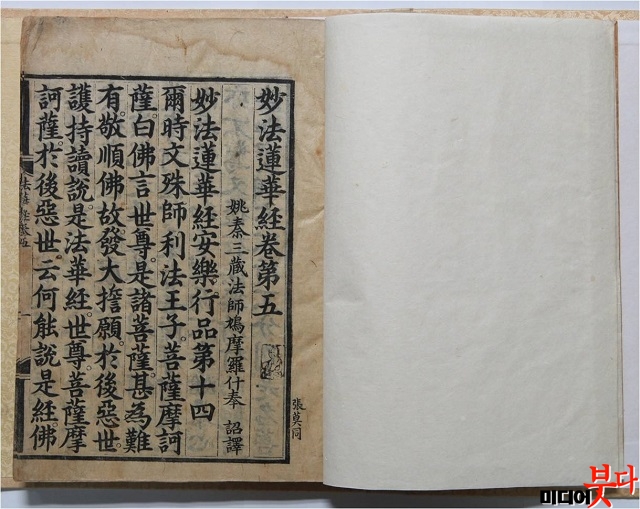 妙法蓮華經卷第五
姚秦三藏法師鳩摩羅什奉 詔譯
妙法蓮華經安樂行品第十四
爾時文殊師利法王子菩薩摩訶
薩白佛言世尊是諸菩薩甚為難
有敬順佛故發大擔願於後惡世
護持讀說是法華經世尊菩薩摩
訶薩於後惡世云何能說是經佛
張莫同
미디어붓다